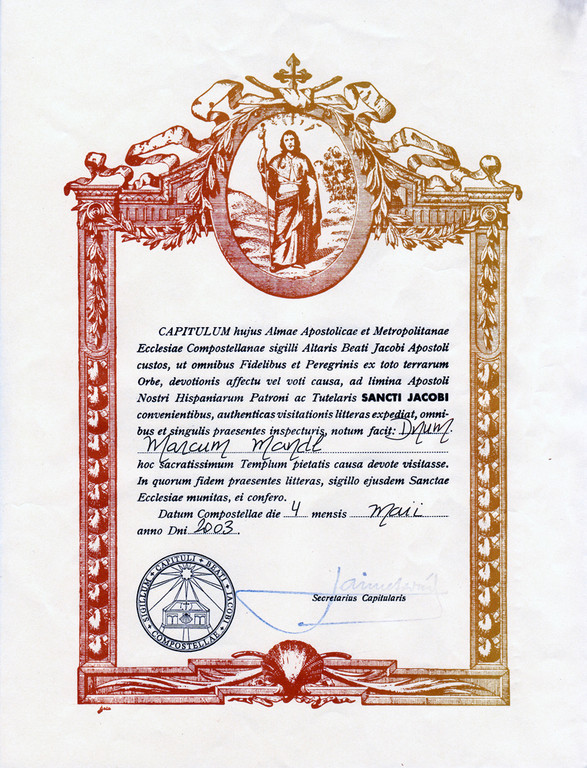 CAPITULUM hujus Almae Apostolicae et Metropolitanae
Ecclesiae Compostellanae sigilli Altaris Beati Jacobi Apostoli
custos, ut omnibus Fidelibus et Peregrinis ex toto terrarum
Orbe, devotionis affectu vel voti causa, ad limina Apostoli
Nostri Hispaniarum Patroni ac Tutelaris SANCTI JACOBI
convenientibus, authenticas visitationis litteras expediat, omni-
bus et singulis praesentes inspecturis, notum facit: Dnum
Marcum Mandl
hoc sacratissimum Templum pietatis causa devote visitasse.
In quorum fidem praesentes litteras, sigillo ejusdem Sanctae
Ecclesiae munitas, ei confero.
Datum Compostellae die 4 mensis Maii
anno Dni 2003.
SIGILLUM CAPITULI BEATI JACOBI COMPOSTELLAE
Secretarius Capitularis